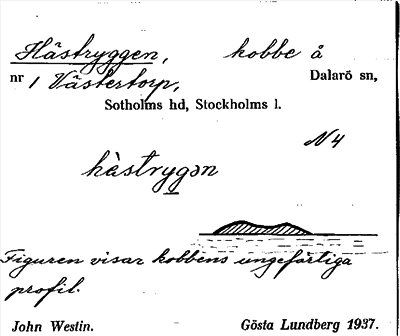 Hästryggen, kobbe å
nr 1 Västertorp, Dalarö sn,
Sotholms hd, Stockholms l.
N4
hàstrygən
Figuren visar kobbens ungefärliga
profil.
John Westin. Gösta Lundberg 1937.